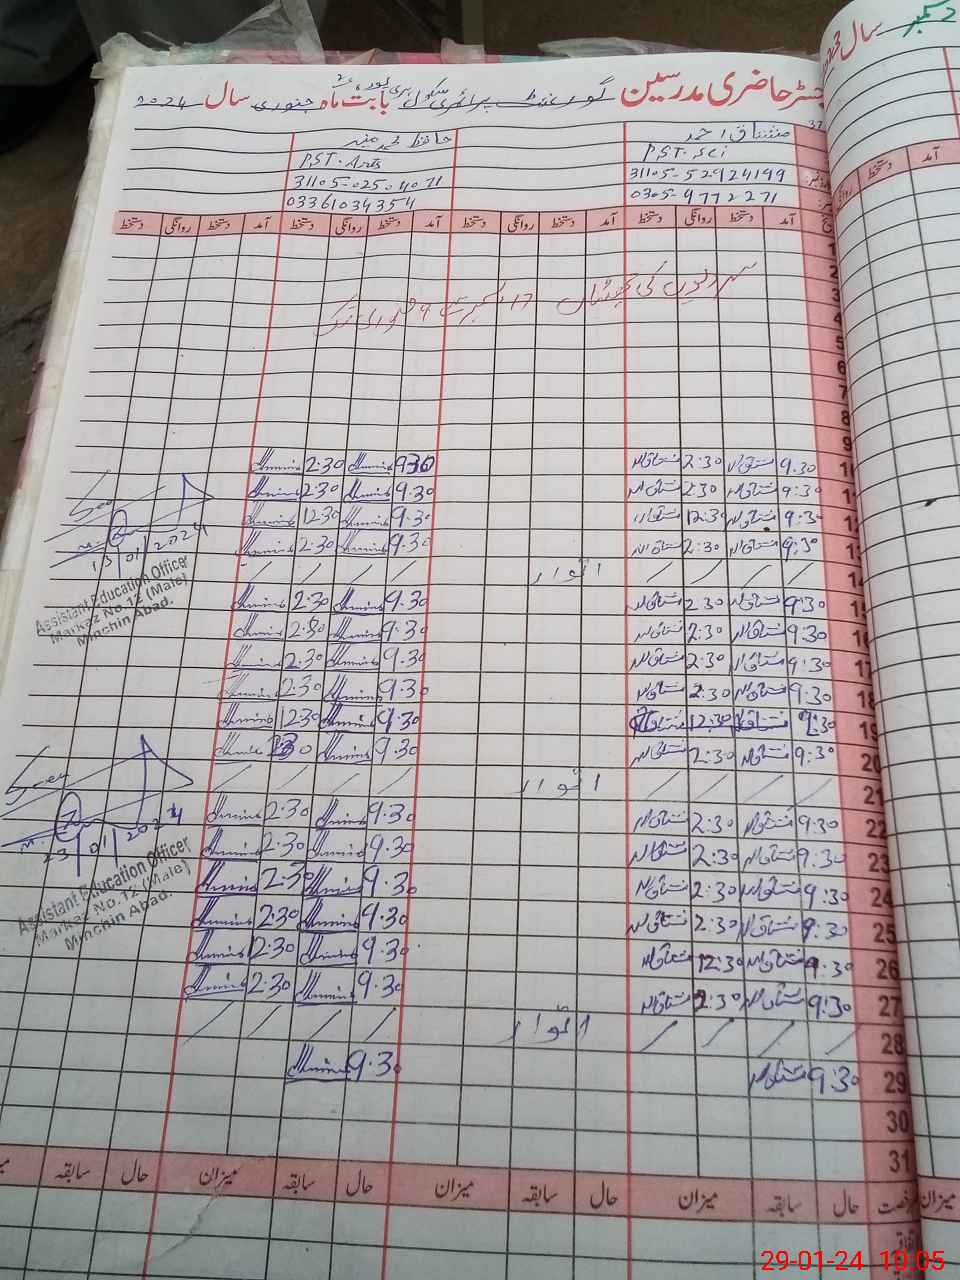 رجسٹر حاضری مدرسین گورنمنٹ پرائمری سکول بابت ماہ جنوری سال 2024
دسمبر سال
مشتاق احمد
حافظ محمد منیر
PST. Sci
PST. Arts
31105-52924199
31105-02504071
0305-9772271
03361034354
آمد دستخط روانگی دستخط آمد دستخط روانگی دستخط آمد دستخط روانگی دستخط آمد دستخط روانگی دستخط
آمد دستخط روانگی
1
2
سردیوں کی چھٹیاں 17 دسمبر سے 9 جنوری تک
3
4
5
6
7
8
9
10 9.30 مشتاق احمد 2:30 مشتاق احمد 930 2:30
11 9:30 مشتاق احمد 2:30 مشتاق احمد 9.30 2:30
12 9:30 مشتاق احمد 12:30 مشتاق احمد 9.30 12:30
13 9:30 مشتاق احمد 2:30 مشتاق احمد 9.30 2:30
14 / / / / اتوار / / / /
15 9:30 مشتاق احمد 2:30 مشتاق احمد 9.30 2:30
16 9:30 مشتاق احمد 2:30 مشتاق احمد 9.30 2:30
17 9:30 مشتاق احمد 2:30 مشتاق احمد 9.30 2:30
18 9:30 مشتاق احمد 2:30 مشتاق احمد 9.30 2:30
19 9:30 مشتاق احمد 12:30 مشتاق احمد 9.30 1230
20 9:30 مشتاق احمد 2:30 مشتاق احمد 9.30
21 / / / / اتوار / / / /
22 9:30 مشتاق احمد 2:30 مشتاق احمد 9.30 2:30
23 9:30 مشتاق احمد 2:30 مشتاق احمد 9.30 2:30
24 9:30 مشتاق احمد 2:30 مشتاق احمد 9.30 2:30
25 9:30 مشتاق احمد 2:30 مشتاق احمد 9.30 2:30
26 9:30 مشتاق احمد 12:30 مشتاق احمد 9.30 12:30
27 9:30 مشتاق احمد 2:30 مشتاق احمد 9.30 2:30
28 / / / / اتوار / / / /
29 9:30 مشتاق احمد 9.30
30
31
Seen
13/01/2024
Assistant Education Officer
Markaz No.12 (Male)
Minchin Abad.
Seen
23/01/2024
Assistant Education Officer
Markaz No.12 (Male)
Minchin Abad.
میزان رخصت حال سابقہ میزان حال سابقہ میزان حال سابقہ میزان حال سابقہ
اتفاقیہ
29-01-24 10:05